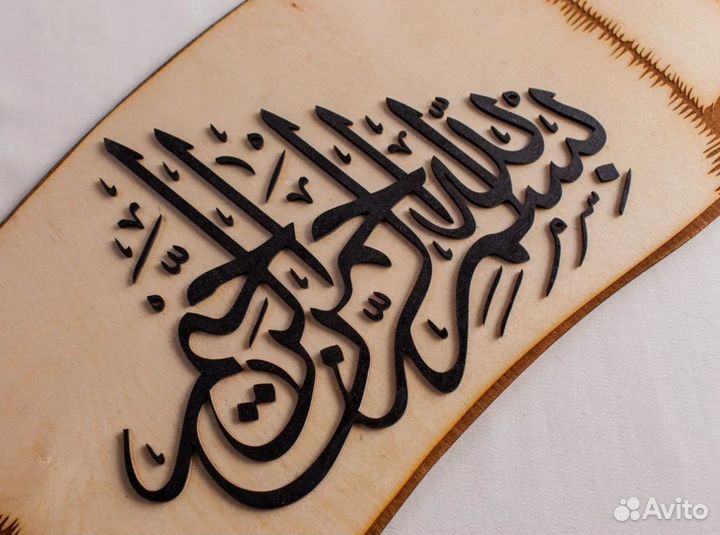 بسم الله الرحمن الرحيم
Avito